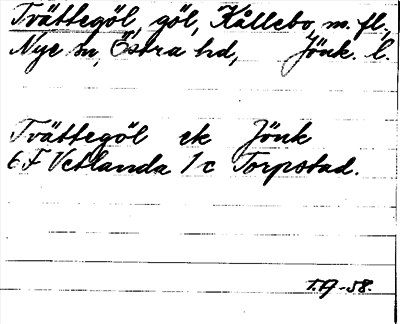 Tvättegöl, göl, Kållebo, m. fl,
Nye sn, Östra hd, Jönk. l.
Tvättegöl ek Jönk
6F Vetlanda 1c Torpstad.